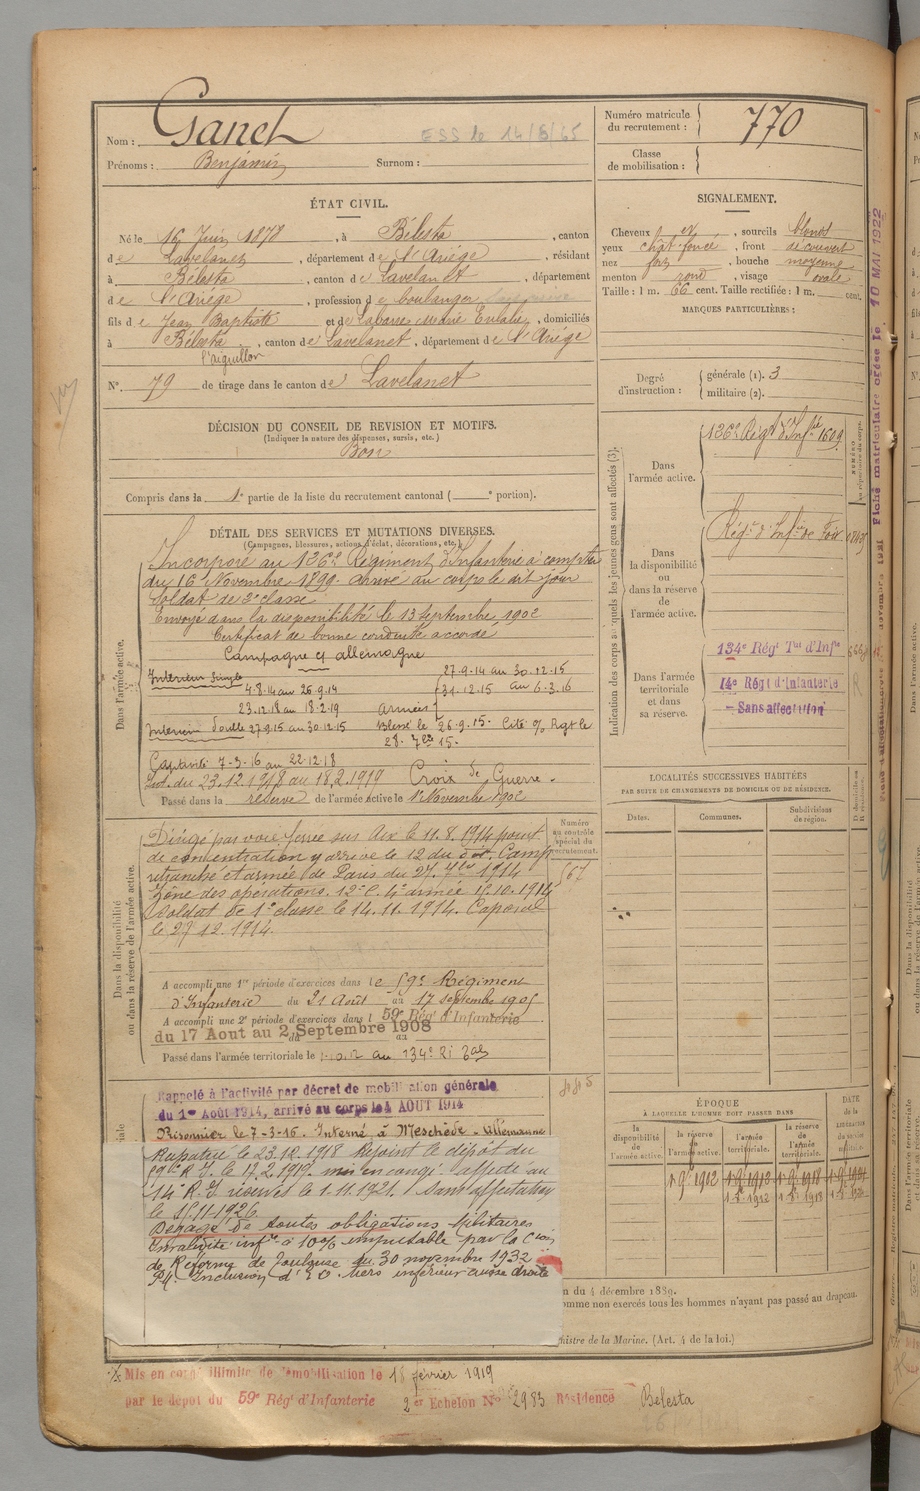 Nom : Ganet
ESS le 14/6/65
Prénoms : Benjamin Surnom :
Numéro matricule du recrutement : 770
Classe de mobilisation :
ÉTAT CIVIL.
Né le 16 Juin 1878, à Bélesta, canton
de Lavelanet, département de l'Ariège, résidant
à Bélesta, canton de Lavelanet, département
de l'Ariège, profession de boulanger
fils de Jean Baptiste et de Labarre Marie Eulalie, domiciliés
à Bélesta, canton de Lavelanet, département de l'Ariège
l'aiguillon
N° 79 de tirage dans le canton de Lavelanet
SIGNALEMENT.
Cheveux et, sourcils blonds
yeux chat. foncé, front découvert
nez fort, bouche moyenne
menton rond, visage ovale
Taille : 1 m. 66 cent. Taille rectifiée : 1 m. cent.
MARQUES PARTICULIÈRES :
Degré d'instruction : générale (1). 3
militaire (2).
DÉCISION DU CONSEIL DE REVISION ET MOTIFS.
(Indiquer la nature des dispenses, sursis, etc.)
Bon
Compris dans la 1e partie de la liste du recrutement cantonal ( e portion).
DÉTAIL DES SERVICES ET MUTATIONS DIVERSES.
(Campagnes, blessures, actions d'éclat, décorations, etc.)
Dans l'armée active.
Incorporé au 126e Régiment d'Infanterie à compter
du 16 Novembre 1899. arrivé au corps le dit jour
Soldat de 2e classe
Envoyé dans la disponibilité le 13 Septembre 1902
Certificat de bonne conduite accordé
Campagne c/ allemagne
Intérieur Simple
4.8.14 au 26.9.14
23.12.18 au 18.2.19
armées
27.9.14 au 30.12.15
31.12.15 au 6.3.16
Intérieur Double 27.9.15 au 30.12.15
Blessé le 26.9.15. Cité o/ Rgt le
28. 7bre 15.
Captivité 7-3-16 au 22-12-18
Int. du 23.12.1918 au 18.2.1919
Croix de Guerre.
Passé dans la réserve de l'armée active le 1 Novembre 1902
Indication des corps auxquels les jeunes gens sont affectés (3).
NUMÉRO au répertoire du corps.
Dans l'armée active.
126e Régt d'Infie 1609
Dans la disponibilité ou dans la réserve de l'armée active.
Régt d'Infie de Foix
Dans l'armée territoriale et dans sa réserve.
134e Régt Tal d'Infie
14e Régt d'Infanterie
- Sans affectation
Dans la disponibilité ou dans la réserve de l'armée active.
Numéro au contrôle spécial du recrutement.
167
Dirigé par voie ferrée sur Aix le 11.8.1914 point
de concentration y arrive le 12 du dit. Camp
retranché et armée de Paris du 27. 7bre 1914
Zône des opérations. 12e C. 4e armée 15.10.1914
Soldat de 1e classe le 14.11.1914. Caporal
le 27.12.1914.
A accompli une 1re période d'exercices dans le 59e Régiment
d'Infanterie du 21 Août au 17 septembre 1905
A accompli une 2e période d'exercices dans l 59e Régt d'Infanterie
du 17 Aout au 2 Septembre 1908
Passé dans l'armée territoriale le 1.10.12 au 134e RI Tal
LOCALITÉS SUCCESSIVES HABITÉES
PAR SUITE DE CHANGEMENTS DE DOMICILE OU DE RÉSIDENCE.
Dates. Communes. Subdivisions de région. D domicile ou R résidence.
Rappelé à l'activité par décret de mobilisation générale
du 1er Août 1914, arrivé au corps le 4 AOUT 1914
Prisonnier le 7-3-16. Interné à Meschède - Allemagne
Rapatrié le 23.12.1918 Rejoint le dépôt du
59e R.I. le 17.2.1919 mis en congé. affecté au
14e R.I. réserves le 1.11.1921. Sans affectation
le 15.11.1926.
Dégagé de toutes obligations Militaires
Invalidité infre à 10% imputable par la Cion
de Réforme de Toulouse du 30 novembre 1932
P/ Inclusion d'E.O. tiers inférieur cuisse droite
ÉPOQUE
À LAQUELLE L'HOMME DOIT PASSER DANS
la disponibilité de l'armée active.
la réserve de l'armée active.
l'armée territoriale.
la réserve de l'armée territoriale.
DATE de la LIBÉRATION du service militaire.
n du 4 décembre 1889.
omme non exercés tous les hommes n'ayant pas passé au drapeau.
nistre de la Marine. (Art. 4 de la loi.)
Mis en congé illimité de démobilisation le 18 février 1919
par le dépôt du 59e Régt d'Infanterie 2er Echelon No 2983 Résidence Belesta
Fiché matriculaire créée le 10 MAI 1922